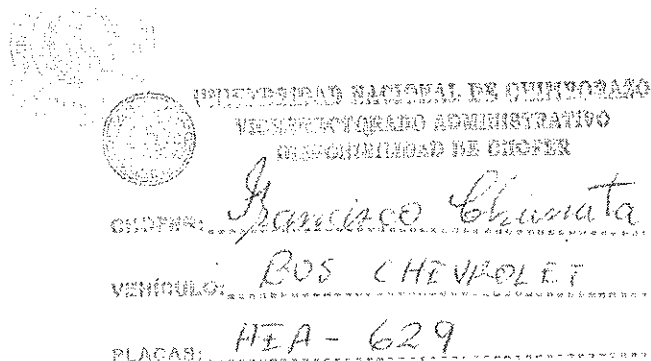 UNIVERSIDAD NACIONAL DE CHIMBORAZO
VICERRECTORADO ADMINISTRATIVO
DISPONIBILIDAD DE CHOFER
CHOFER: Francisco
VEHÍCULO: BUS CHEVROLET
PLACAS: HEA - 629